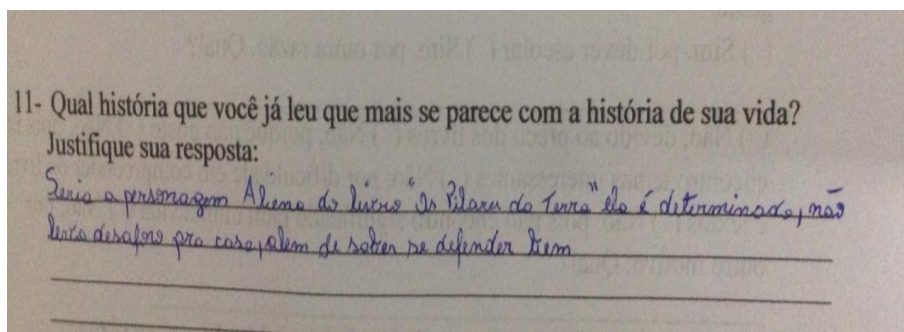 11- Qual história que você já leu que mais se parece com a história de sua vida?
Justifique sua resposta:
Seria a personagem Aliena do livro "Os Pilares da Terra" ela é determinada, não
leva desaforo pra casa, alem de saber se defender bem